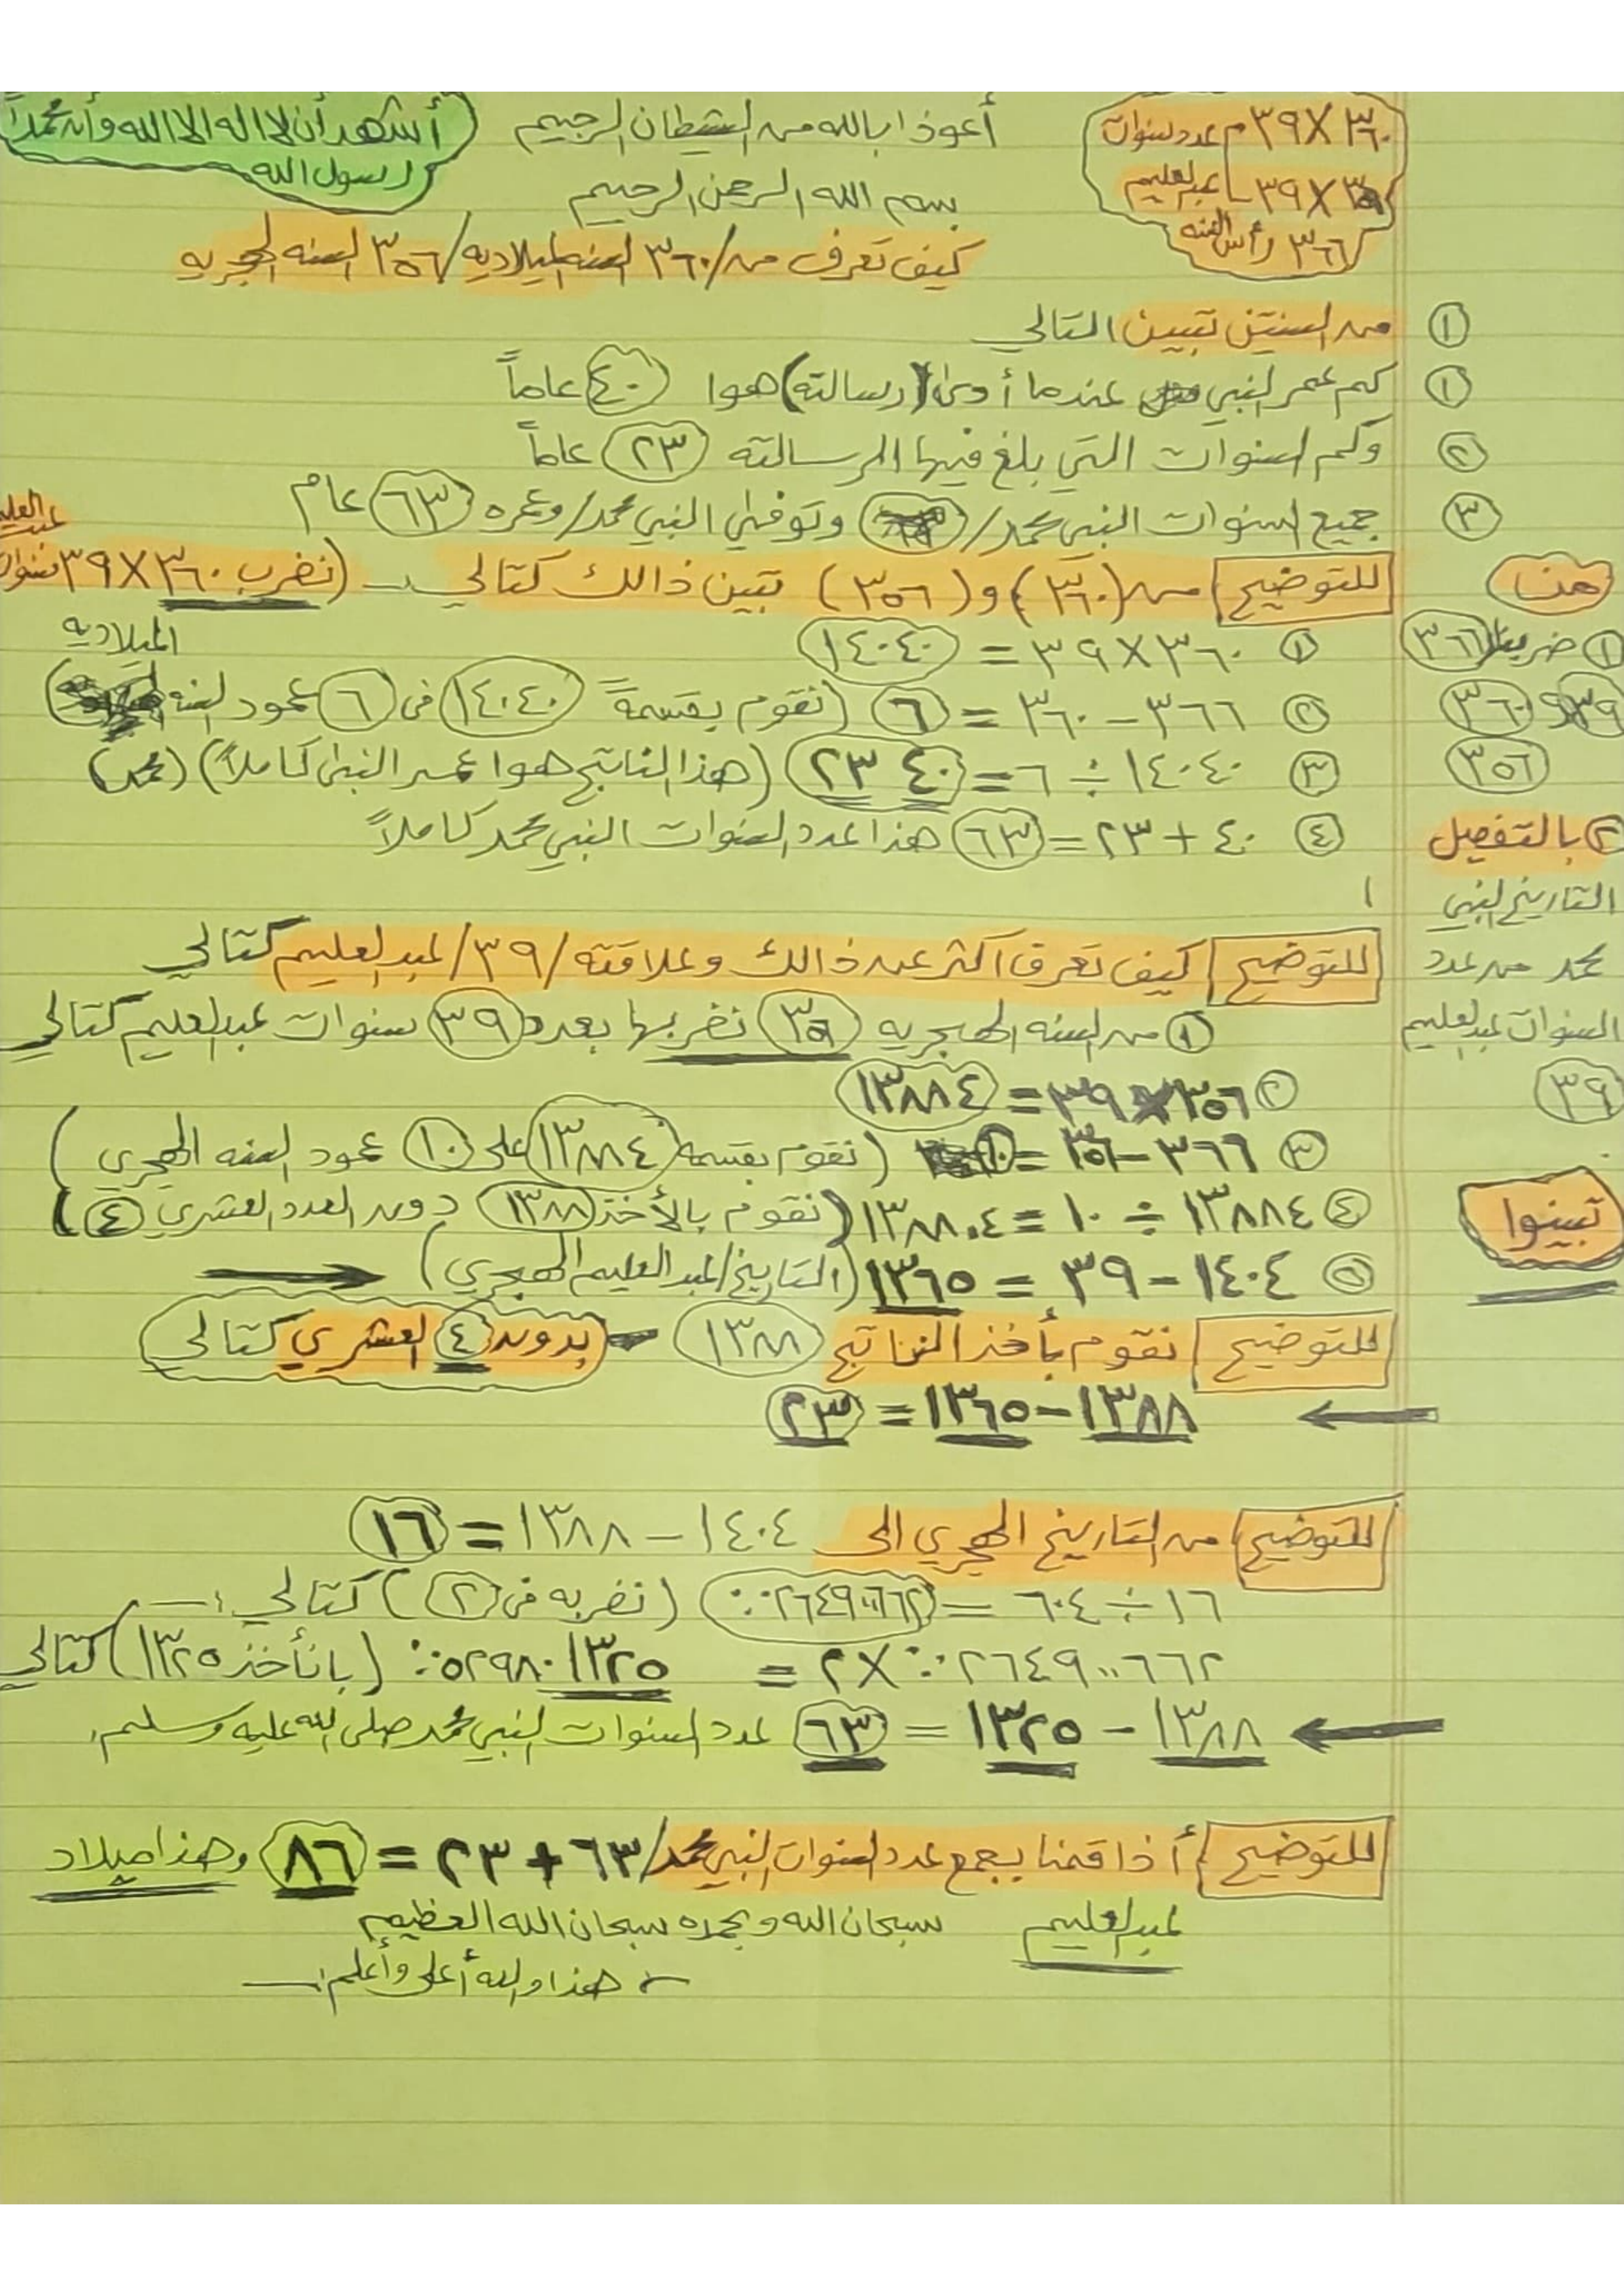 أعوذ ابالله من الشيطان الرجيم
بسم الله الرحمن الرحيم
أشهد أن لا اله الا الله وأن محمداً
رسول الله
٣٦٠ X ٣٩ م عدد سنوات
٣٥٦ X ٣٩ عبدالعليم
٣٦٦/ رأس السنه
كيف تعرف من /٣٦٠ السنه الميلاديه/ ٣٥٦ السنه الهجريه
① من السنتين تبيين التالي
① كم عمر النبي عندما أوحى (رسالته) هوا ٤٠ عاماً
② وكم السنوات التي بلغ فيها الرسالته ٢٣ عاماً
③ جميع السنوات النبي محمد/ وتوفي النبي محمد/ وعمره ٦٣ عام
للتوضيح من (٣٦٠) و (٣٥٦) تبين ذالك كتالي (نضرب ٣٦٠ X ٣٩ سنوات
عبدالعليم
① ٣٦٠ X ٣٩ = ١٤٠٤٠
الميلاديه
② ٣٦٦ - ٣٦٠ = ٦ (نقوم بقسمة ١٤٠٤٠ في ٦ عمود السنه
③ ١٤٠٤٠ ÷ ٦ = ٢٣ ٤٠ (هذا الناتج هوا عمر النبي كاملاً) (محمد)
④ ٤٠ + ٢٣ = ٦٣ هذا عدد السنوات النبي محمد كاملاً
هنا
① ضربنا ٣٦٦
٣٩ و ٣٦٠
٣٥٦
② بالتفصيل
التاريخ النبي
محمد من عدد
السنوات عبدالعليم
٣٩
تبينوا
للتوضيح كيف تعرف اكثر عن ذالك وعلاقته /٣٩/ عبدالعليم كتالي
① من السنه الهجريه ٣٥٦ نضربها بعدد ٣٩ سنوات عبدالعليم كتالي
② ٣٥٦ X ٣٩ = ١٣٨٨٤
③ ٣٦٦ - ٣٥٦ = ١٠ (نقوم بقسمه ١٣٨٨٤ على ١٠ عمود السنه الهجري)
④ ١٣٨٨٤ ÷ ١٠ = ١٣٨٨.٤ (نقوم بالأخذ ١٣٨٨ دون العدد العشري ٤)
⑤ ١٤٠٤ - ٣٩ = ١٣٦٥ (التاريخ/عبدالعليم الهجري)
للتوضيح نقوم بأخذ الناتج ١٣٨٨ - بدون ٤ العشري كتالي
١٣٨٨ - ١٣٦٥ = ٢٣
للتوضيح من التاريخ الهجري الى ١٤٠٤ - ١٣٨٨ = ١٦
١٦ ÷ ٦٠٤ = (نضربه في ٢) كتالي :-
X ٢ = ١٣٢٥ (بانأخذ ١٣٢٥) كتالي
١٣٨٨ - ١٣٢٥ = ٦٣ عدد السنوات النبي محمد صلى الله عليه وسلم
للتوضيح أذا قمنا بجمع عدد السنوات النبي محمد/ ٦٣ + ٢٣ = ٨٦ وهذا ميلاد
عبدالعليم سبحان الله وبحمده سبحان الله العظيم
هذا والله أعلى وأعلم